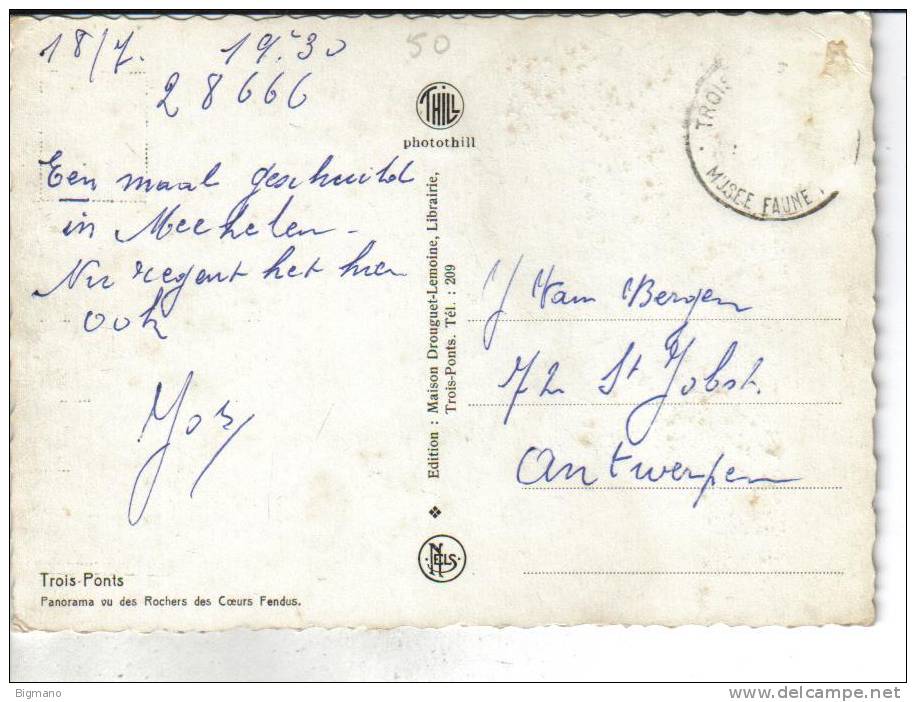 18/7. 19.30
50
28666
Een maal geschuild
in Mechelen -
Nu regent het hier
ook
THILL
photothill
Edition : Maison Drouguet-Lemoine, Librairie,
Trois-Ponts. Tél. : 209
NELS
TROIS
MUSEE FAUNE
Van Bergen
72 St Jobst.
Antwerpen
Trois-Ponts
Panorama vu des Rochers des Cœurs Fendus.
Bigmano
www.delcampe.net